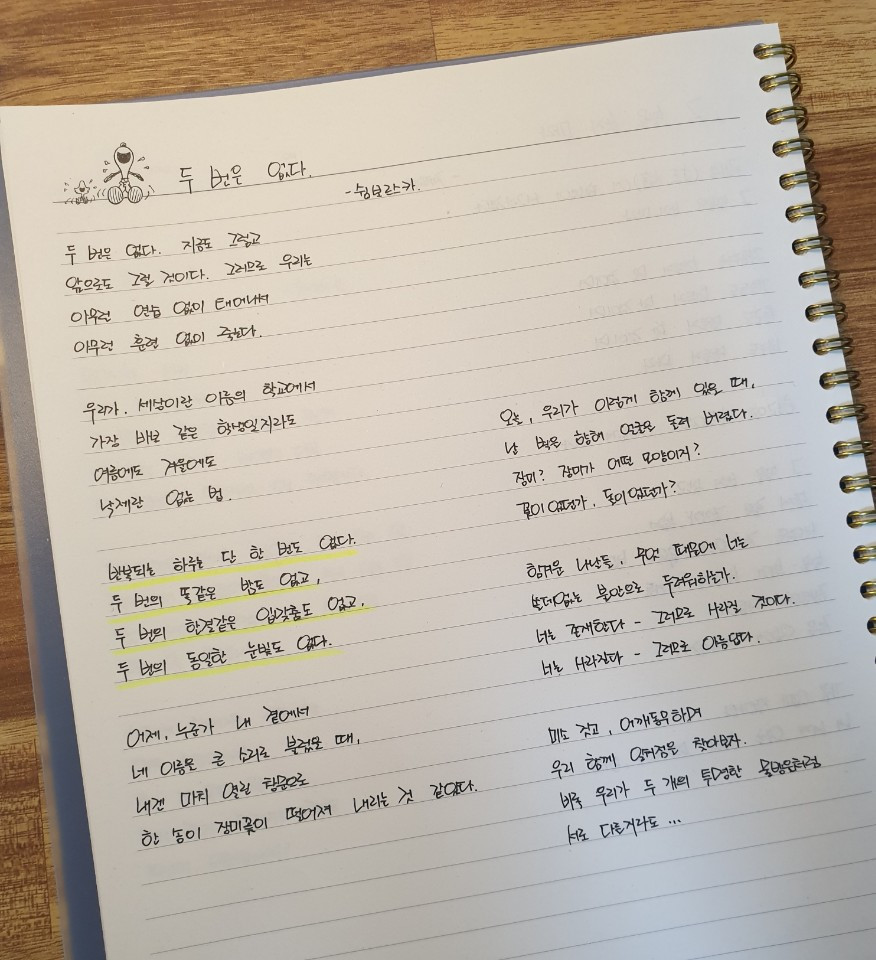 두 번은 없다.
-쉼보르스카.
두 번은 없다. 지금도 그렇고
앞으로도 그럴 것이다. 그러므로 우리는
아무런 연습 없이 태어나서
아무런 훈련 없이 죽는다.
우리가, 세상이란 이름의 학교에서
가장 바보 같은 학생일지라도
여름에도 겨울에도
낙제란 없는 법.
반복되는 하루는 단 한 번도 없다.
두 번의 똑같은 밤도 없고,
두 번의 한결같은 입맞춤도 없고,
두 번의 동일한 눈빛도 없다.
어제, 누군가 내 곁에서
네 이름을 큰 소리로 불렀을 때,
내겐 마치 열린 창문으로
한 송이 장미꽃이 떨어져 내리는 것 같았다.
오늘, 우리가 이렇게 함께 있을 때,
난 벽을 향해 얼굴을 돌려 버렸다.
장미? 장미가 어떤 모양이지?
꽃이었던가, 돌이었던가?
힘겨운 나날들, 무엇 때문에 너는
쓸데없는 불안으로 두려워하는가.
너는 존재한다 - 그러므로 사라질 것이다.
너는 사라진다 - 그러므로 아름답다.
미소 짓고, 어깨동무하며
우리 함께 일치점을 찾아보자.
비록 우리가 두 개의 투명한 물방울처럼
서로 다를지라도 ...